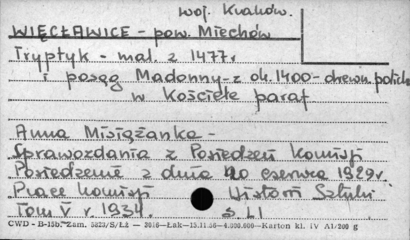 woj. Kraków.
WIĘCŁAWICE - pow. Miechów
Tryptyk - mal. z 1477 r
i posąg Madonny - z ok. 1400 - drewn. polich
w Kościele paraf
Anna Misiążanka -
Sprawozdania z Posiedzeń Komisji
Posiedzenie z dnia 20 czerwca 1929 r.
Prace Komisji Historii Sztuki
Tom V r. 1934. s. LI
CWD - B-15b. Zam. 5829/S/Łż - 2016 - Łok - 15.11.56 - 4.000.000 - Karton kl. IV A1/200 g